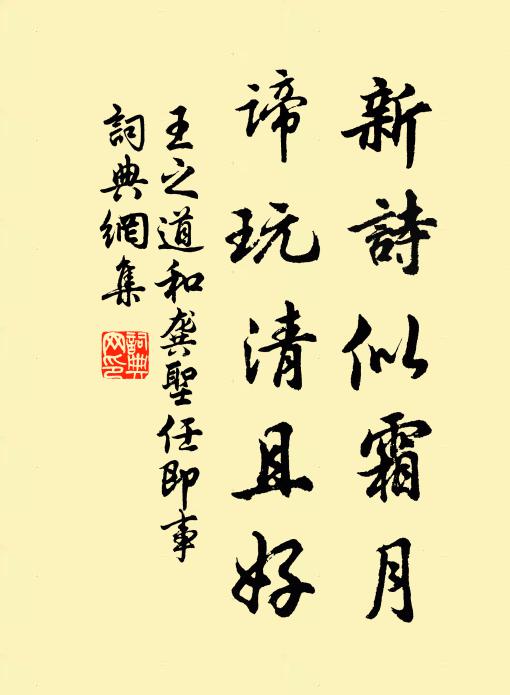 新詩似霜月
諦玩清且好
王之道和龚聖任即事
詞典網集
詞典網印